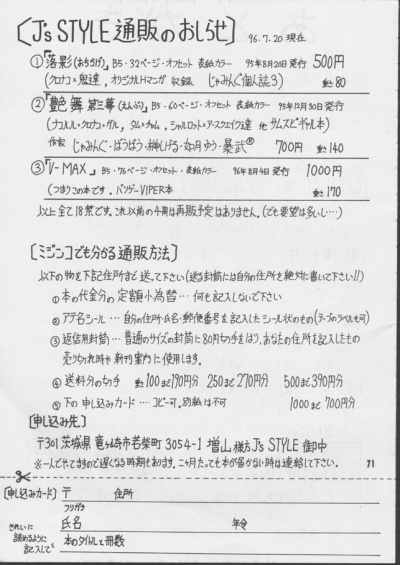 [J's STYLE 通販のおしらせ] 96.7.20 現在
①『落影(おちかげ)』B5・32ページ・オフセット 表紙カラー 95年8月20日発行 500円
(クロナコ×鬼達, オリジナルマンガ 収録 じゃみんぐ個人誌3) 〒80
②『艶舞 第三幕(えんぶ)』B5・60ページ・オフセット 表紙カラー 95年12月30日発行
作家 じゃみんぐ・ばうばう・榊しげる・如月ゆう・暴武® 700円 〒140
③『V-MAX』B5・76ページ・オフセット・表紙カラー 96年8月4日発行 1000円
(つまりこの本です。バンプーVIPER本) 〒170
以上全て18禁です。これ以前の4冊は再販予定はありません。(でも要望は多いし…)
[ミジンコでも分かる通販方法]
以下の物を下記住所まで送って下さい(送る封筒には自分の住所を絶対に書いて下さい!!)
①本の代金分の定額小為替…何も記入しないで下さい
②アテ名シール…自分の住所・氏名・郵便番号を記入したシール状のもの(テープのラベルも可)
③返信用封筒…普通のサイズの封筒に80円切手をはり、あなたの住所を記入したもの
売り切れ時や新刊案内に使用します。
④送料分の切手 〒100まで190円分 250まで270円分 500まで390円分
⑤下の申し込みカード…コピー可。別紙は不可 1000まで700円分
[申し込み先]
〒301 茨城県竜ヶ崎市若柴町3054-1 増山様方J's STYLE 御中
※一人でやってますので遅くなる時期もあります。二ヶ月たっても本が届かない時は連絡して下さい。 71
[申し込みカード] 〒 住所
フリガナ
氏名 年令
きれいに
読めるように
記入して
本のタイトルと冊数